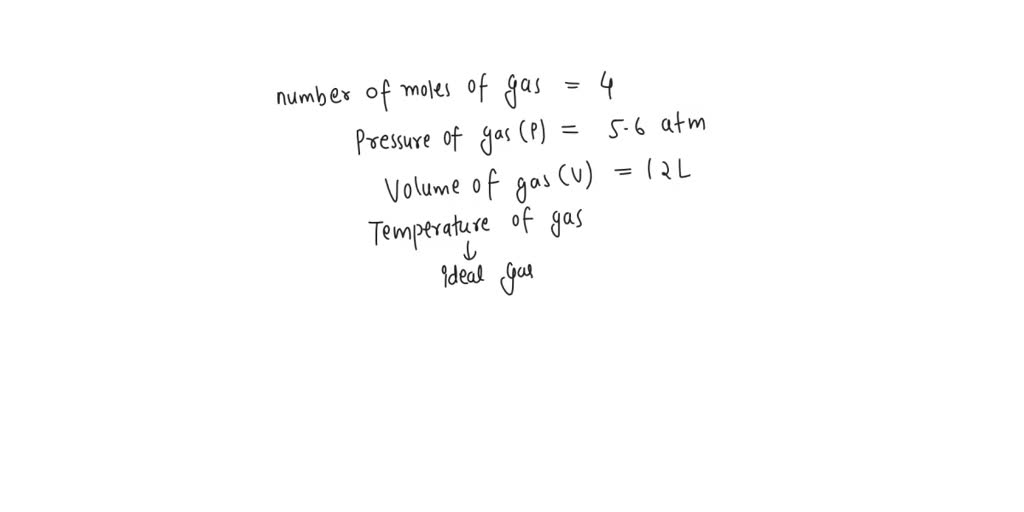 number of moles of gas = 4
Pressure of gas (P) = 5.6 atm
Volume of gas (V) = 12L
Temperature of gas
↓
ideal gas